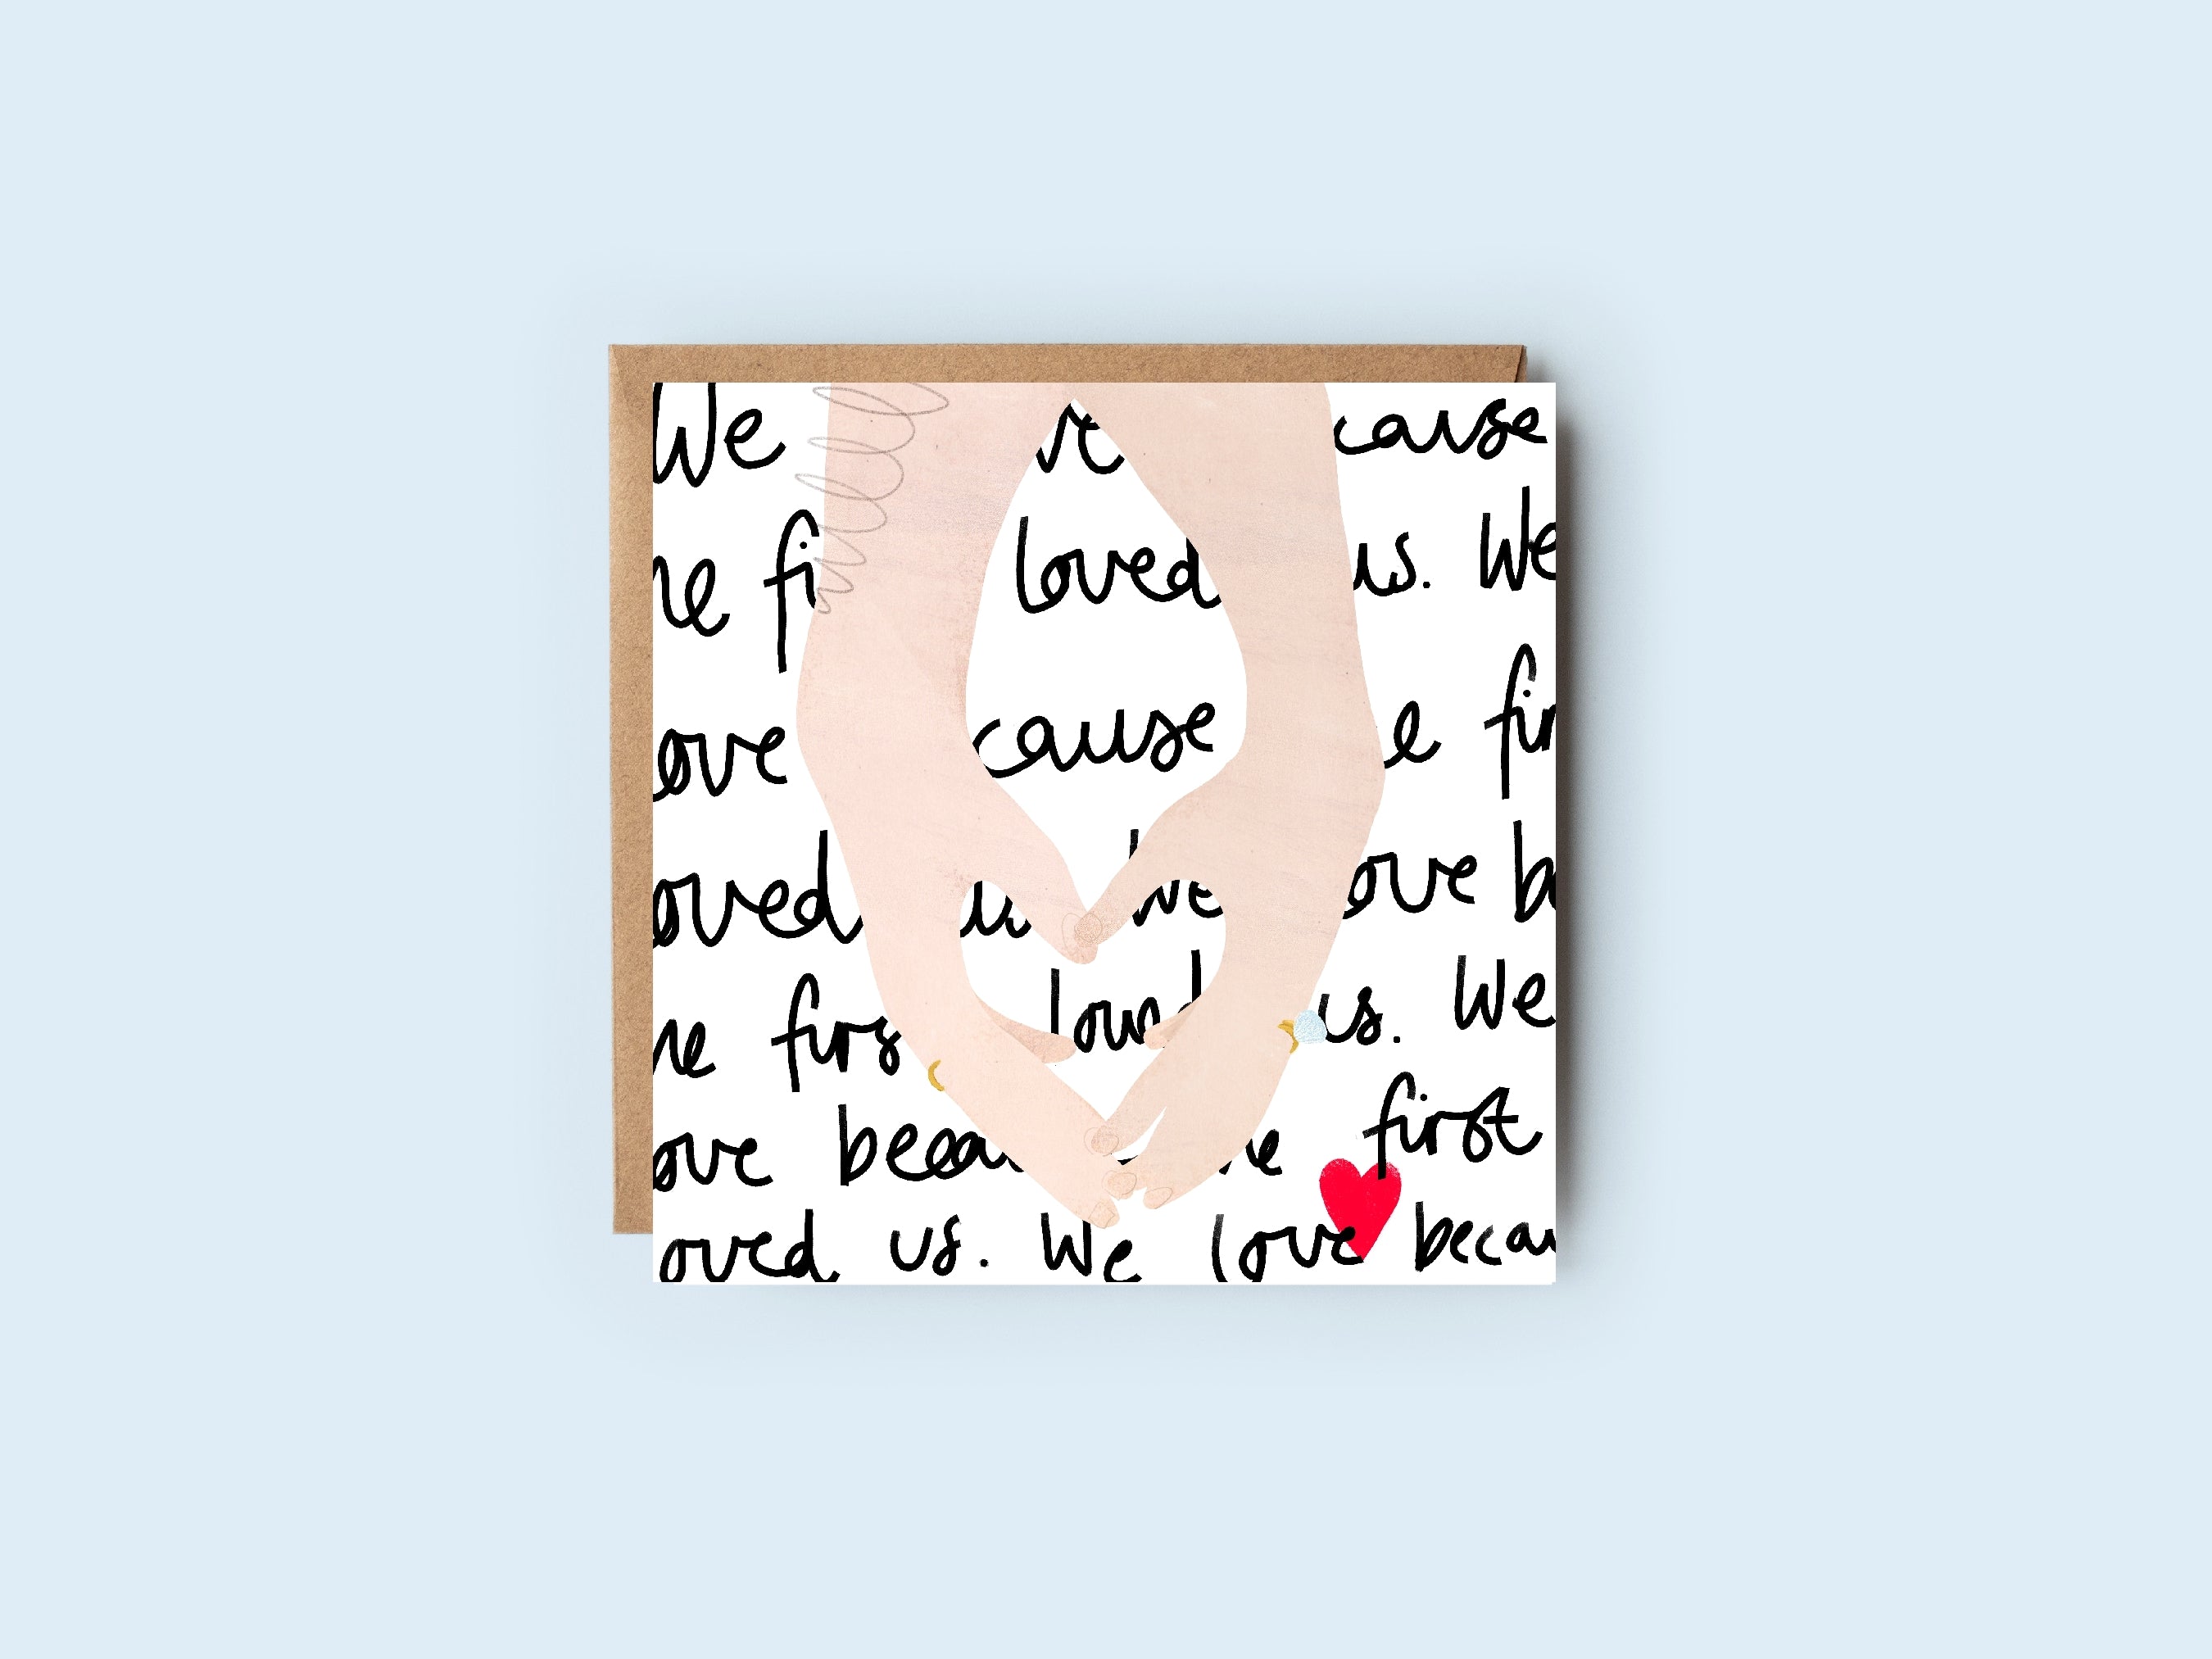 We ve cause
he fi loved us. We
ove cause e fir
oved We ove be
he firs loved us. We
ove becau he first
oved us. We love becau